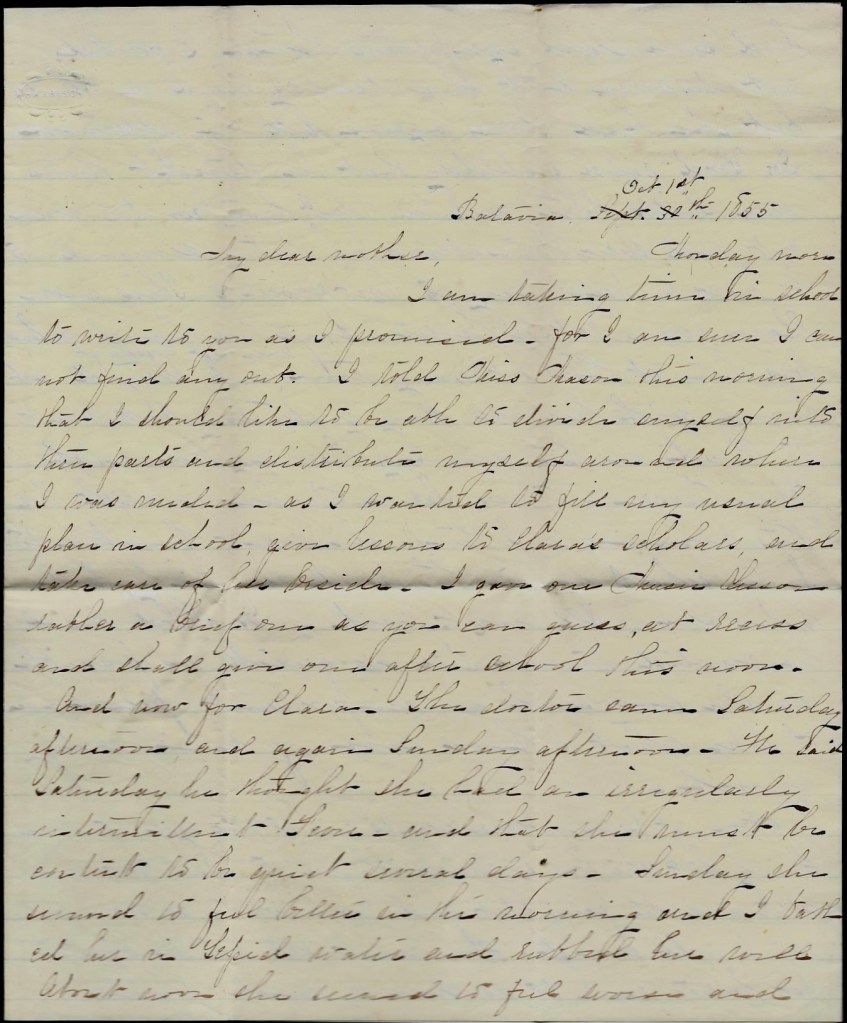 Oct 1st
Batavia, Sept. 30th 1855
My dear mother, Monday morn
I am taking time in school
to write to you as I promised - for I am sure I can
not find any out. I told Miss Mason this morning
that I should like to be able to divide myself into
three parts and distribute myself around where
I was needed - as I wanted to fill my usual
place in school, give lessons to Clara's scholars, and
take care of her beside - I gave one Music Lesson
rather a brief one as you can guess, at recess
and shall give one after school this noon -
And now for Clara - The doctor came Saturday
afternoon, and again Sunday afternoon - He said
Saturday he thought she had an irregularly
intermittent fever - and that she must be
content to be quiet several days - Sunday she
seemed to feel better in the morning and I bath
ed her in tepid water and rubbed her well
About noon she seemed to feel worse and